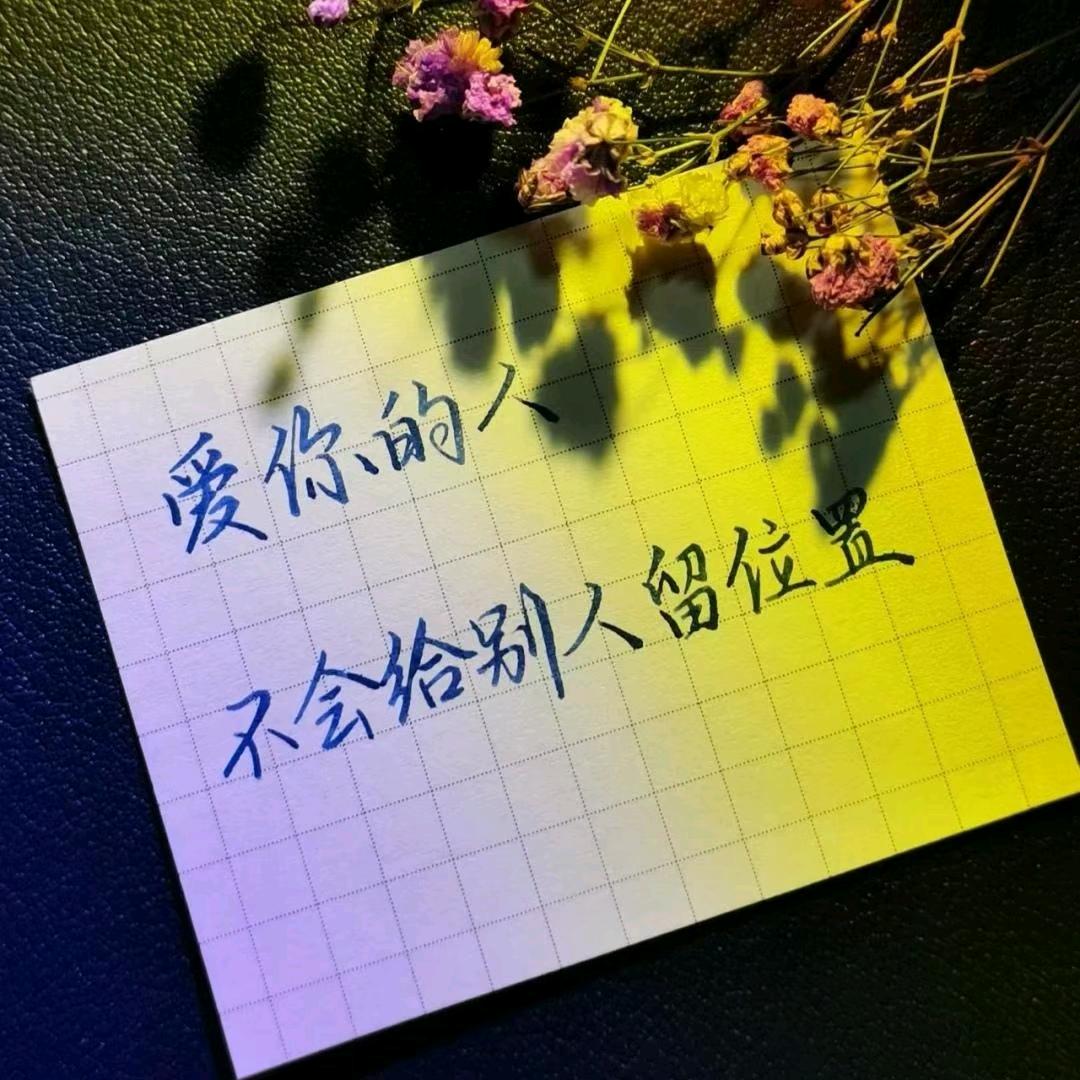 爱你的人
不会给别人留位置